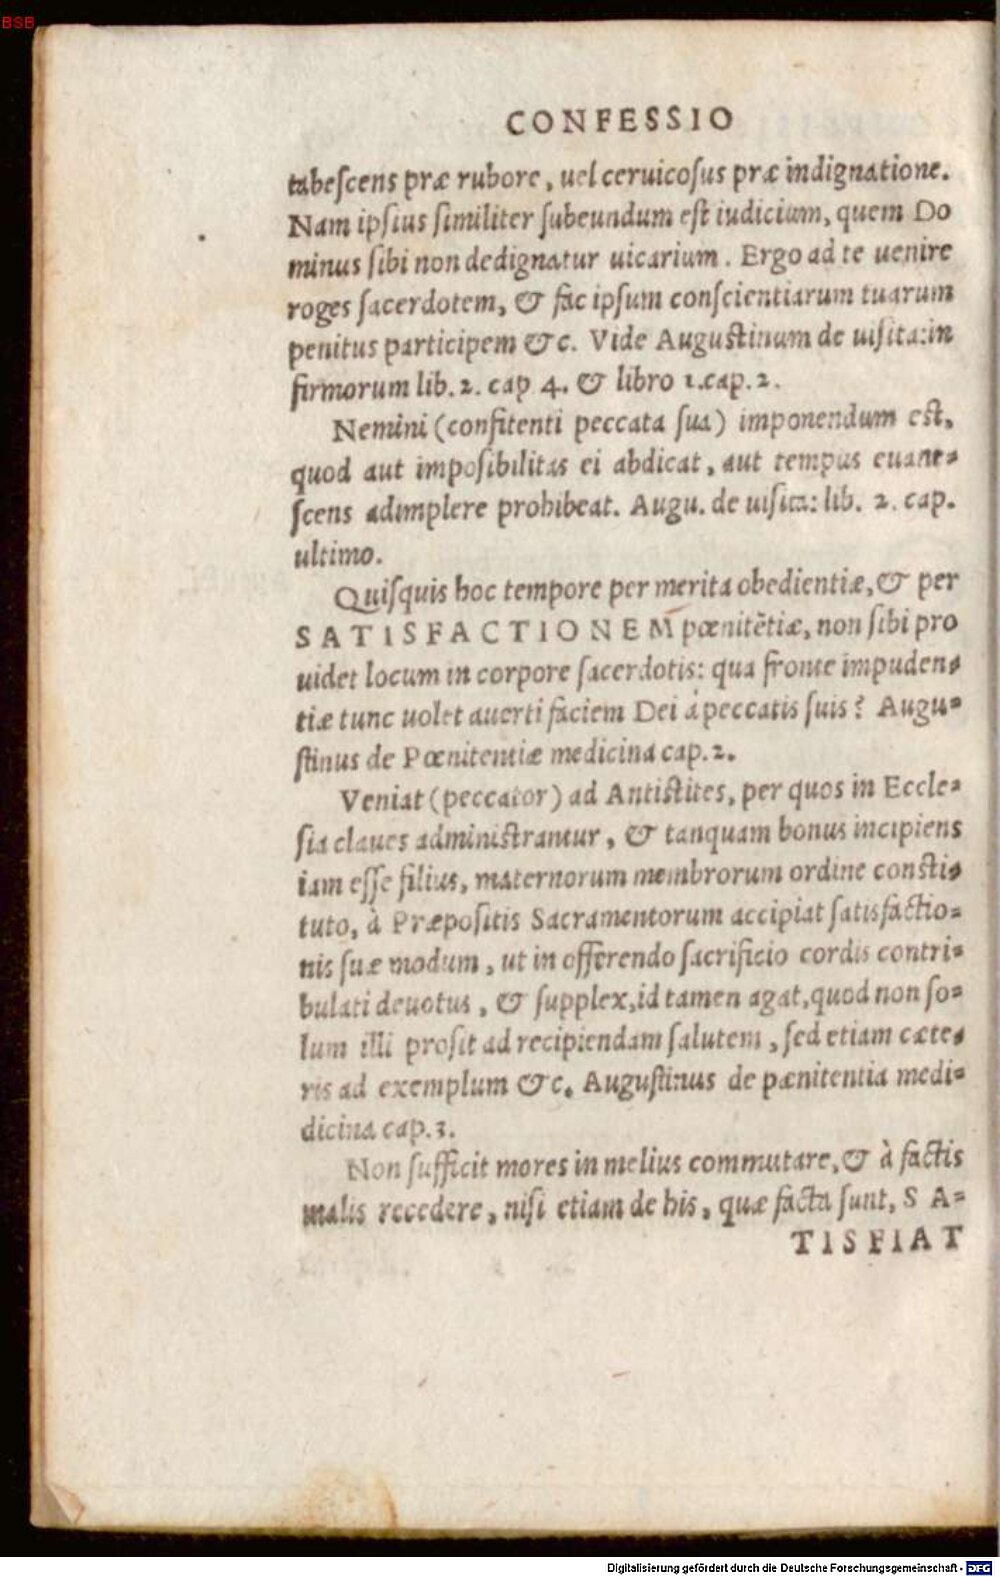 BSB
CONFESSIO
tabeſcens præ rubore, uel ceruicoſus præ indignatione.
Nam ipſius ſimiliter ſubeundum eſt iudicium, quem Do
minus ſibi non dedignatur uicarium. Ergo ad te uenire
roges ſacerdotem, & fac ipſum conſcientiarum tuarum
penitus participem &c. Vide Auguſtinum de uiſita: in
firmorum lib. 2. cap 4. & libro 1. cap. 2.
Nemini (confitenti peccata ſua) imponendum eſt,
quod aut impoſibilitas ei abdicat, aut tempus euane-
ſcens adimplere prohibeat. Augu. de uiſita: lib. 2. cap.
ultimo.
Quiſquis hoc tempore per merita obedientiæ, & per
SATISFACTIONEM pœnitẽtiæ, non ſibi pro
uidet locum in corpore ſacerdotis: qua fronte impuden-
tiæ tunc uolet auerti faciem Dei à peccatis ſuis? Augu-
ſtinus de Pœnitentiæ medicina cap. 2.
Veniat (peccator) ad Antiſtites, per quos in Eccle-
ſia claues adminiſtrantur, & tanquam bonus incipiens
iam eſſe filius, maternorum membrorum ordine conſti-
tuto, à Præpoſitis Sacramentorum accipiat ſatisfactio-
nis ſuæ modum, ut in offerendo ſacrificio cordis contri-
bulati deuotus, & ſupplex, id tamen agat, quod non ſo-
lum illi proſit ad recipiendam ſalutem, ſed etiam cæte-
ris ad exemplum &c. Auguſtinus de pænitentia medi-
dicina cap. 3.
Non ſufficit mores in melius commutare, & à factis
malis recedere, niſi etiam de his, quæ facta ſunt, SA-
TISFIAT
Digitalisierung gefördert durch die Deutsche Forschungsgemeinschaft - DFG